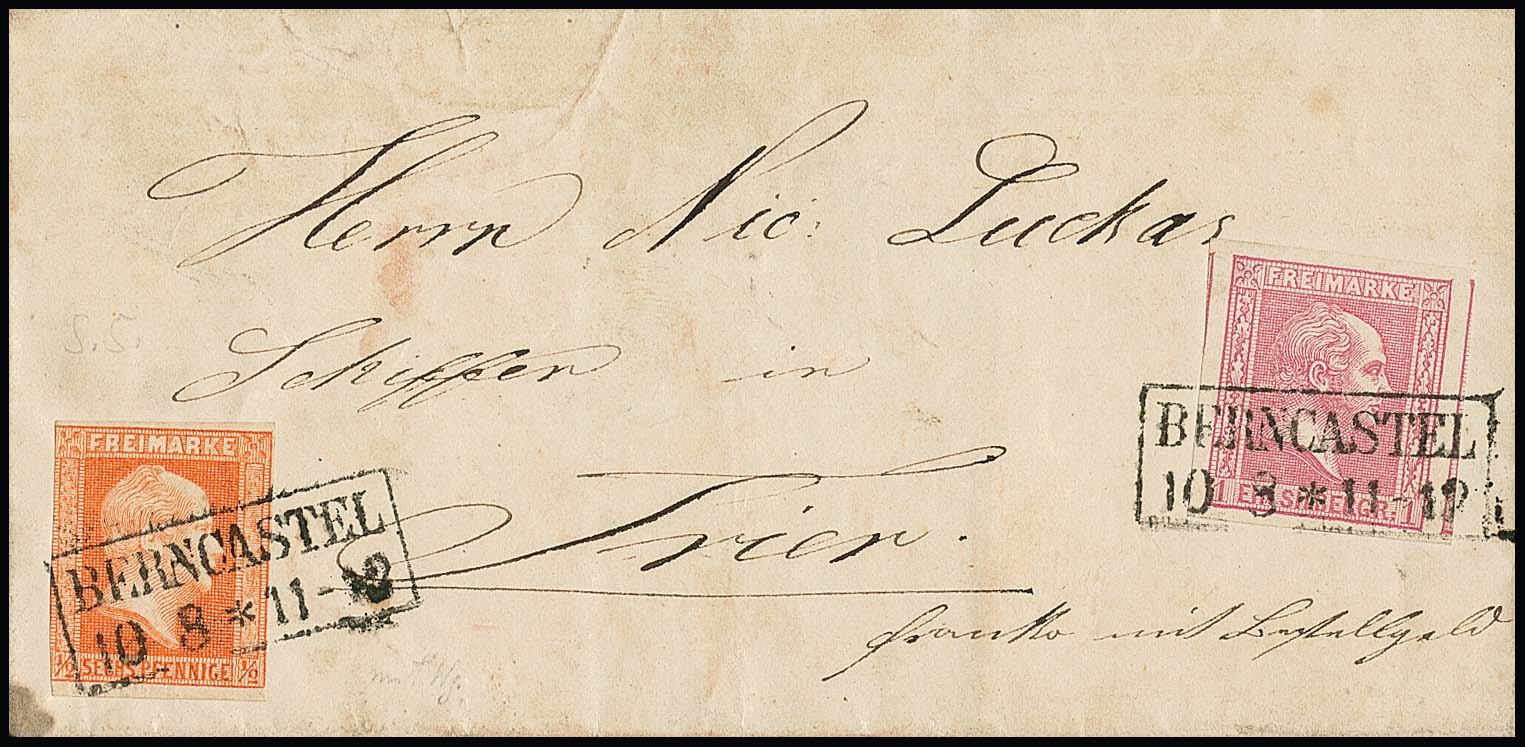 Herrn Nic: Luckas
Schiffer in
Trier.
franko mit Bestellgeld
FREIMARKE
1 EIN SILBERGR. 1
BERNCASTEL
10 8 * 11-12
FREIMARKE
1/2 SECHS PFENNIGE 1/2
BERNCASTEL
10 8 * 11-12